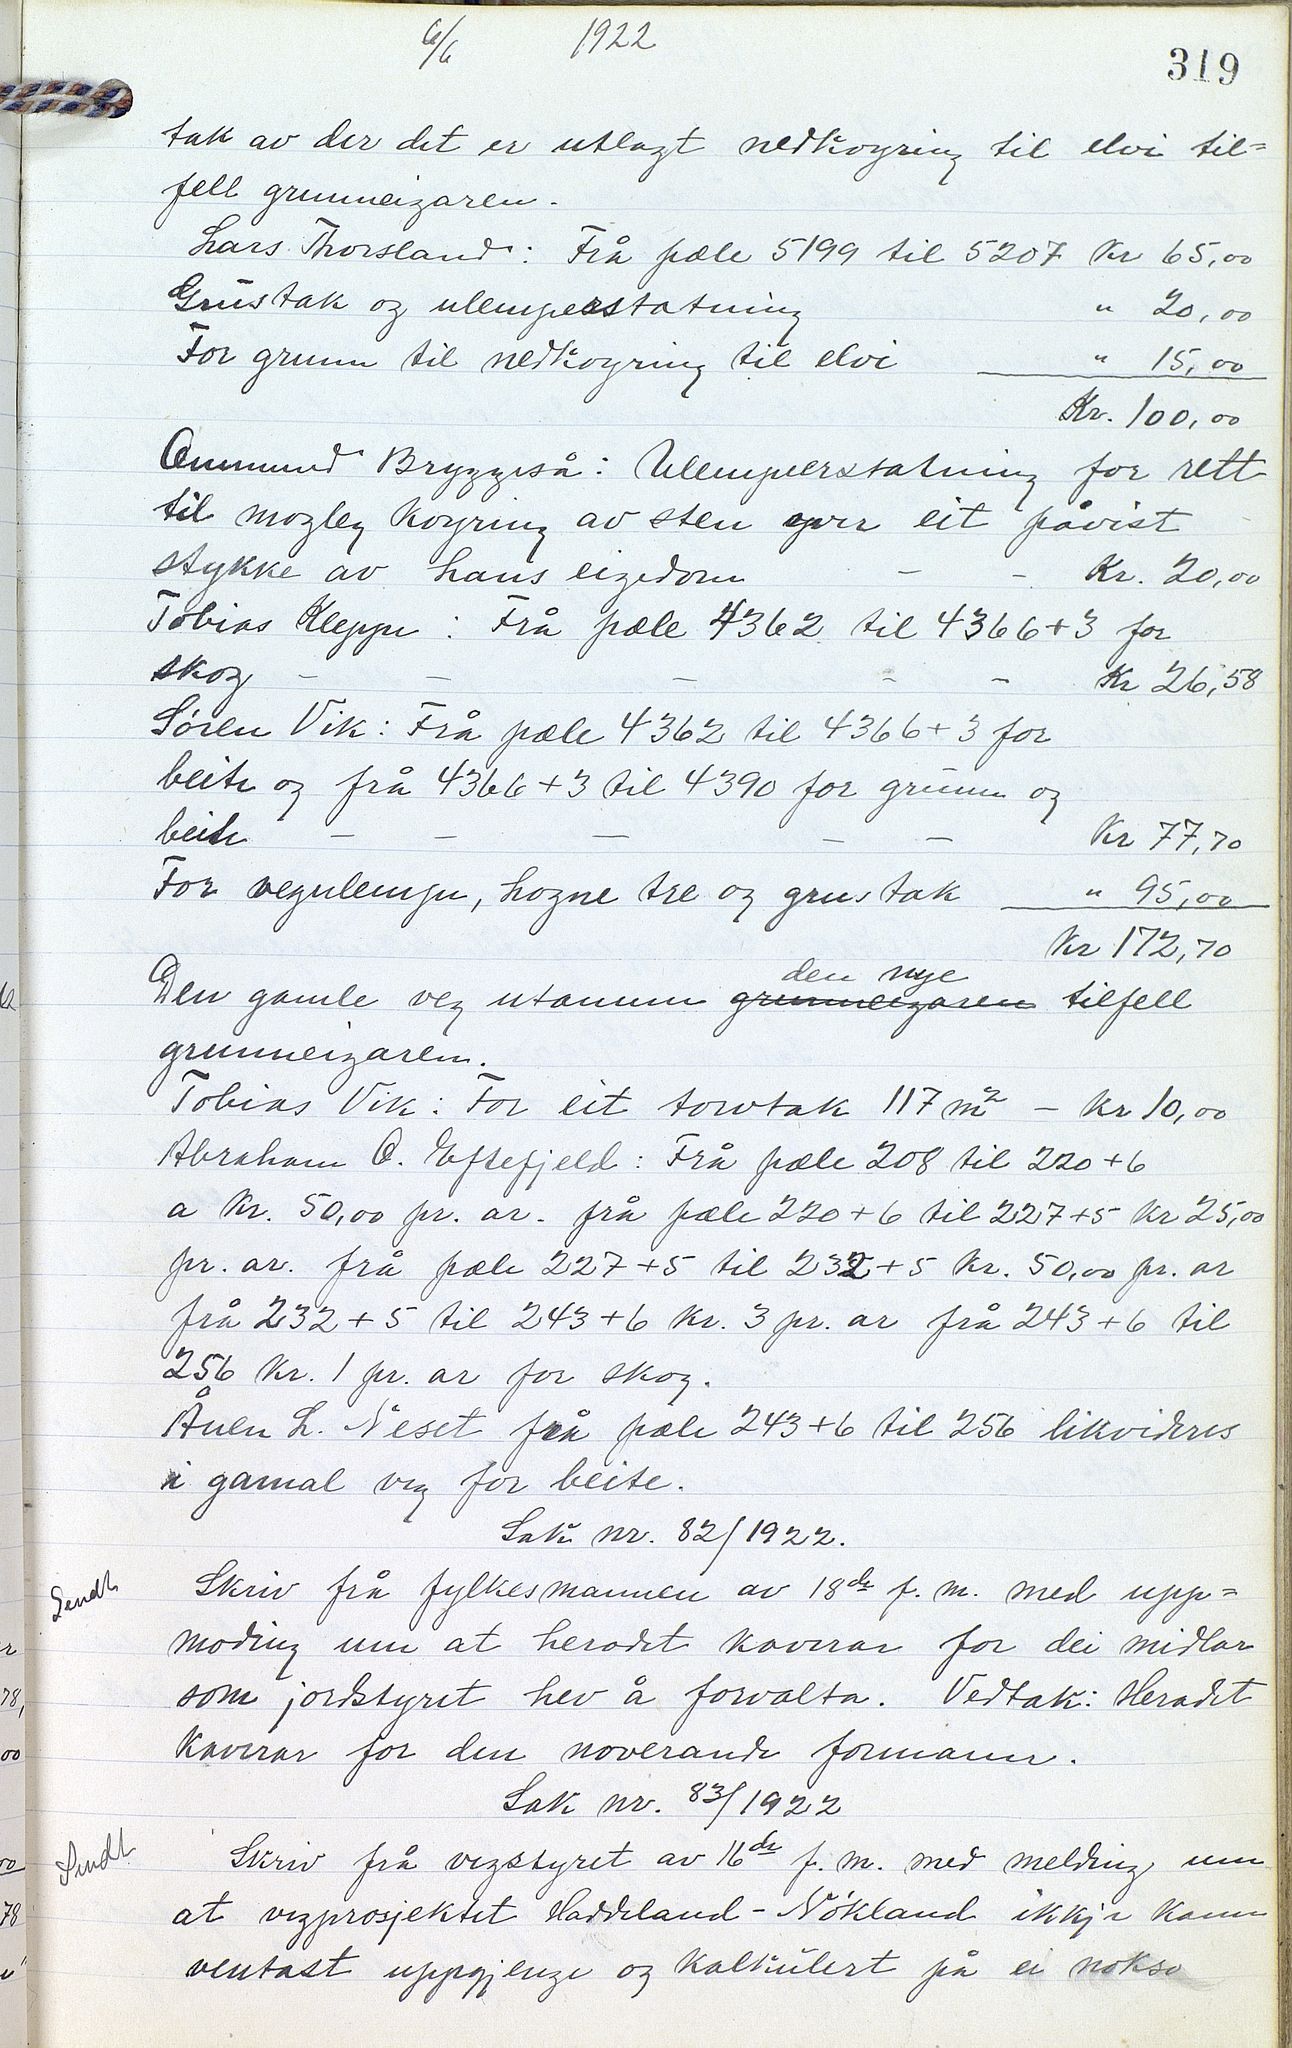 6/6 1922
319
tak av der det er utlagt nedkoyring til elvi til=
fell grunneigaren.
Lars Thorsland: Frå pæle 5199 til 5207 Kr 65,00
Grustak og ulemperstatning " 20,00
For grunn til nedkoyring til elvi " 15,00
Kr. 100,00
Ommund Bryggeså: Ulemperstatning for rett
til mogleg koyring av sten yver eit påvist
stykke av hans eigedom - - Kr. 20,00
Tobias Kleppe: Frå pæle 4362 til 4366+3 for
skog - - - - - Kr 26,58
Søren Vik: Frå pæle 4362 til 4366+3 for
beite og frå 4366+3 til 4390 for grunn og
beite - - - - - Kr 77,70
For vegulempe, hogne tre og grustak " 95,00
Kr 172,70
den nye
Den gamle veg utanum grunneigaren tilfell
grunneigaren.
Tobias Vik: For eit torvtak 117 m² - Kr 10,00
Abraham O. Eftefjeld: Frå pæle 208 til 220+6
a Kr. 50,00 pr. ar. frå pæle 220+6 til 227+5 Kr 25,00
pr. ar. frå pæle 227+5 til 232+5 Kr. 50,00 pr. ar
frå 232+5 til 243+6 Kr. 3 pr. ar frå 243+6 til
256 Kr. 1 pr. ar for skog.
Ånen L. Neset frå pæle 243+6 til 256 likvideres
i gamal veg for beite.
Sak nr. 82/1922.
Sendt
Skriv frå fylkesmannen av 18de f. m. med upp=
moding um at heradet kaverar for dei midlar
som jordstyret hev å forvalta. Vedtak: Heradet
kaverar for den noverande formann.
Sak nr. 83/1922
Sendt
Skriv frå vegstyret av 16de f. m. med melding um
at vegprosjektet Haddeland-Nökland ikkje kann
ventast uppgjenge og kalkulert på ei nokso